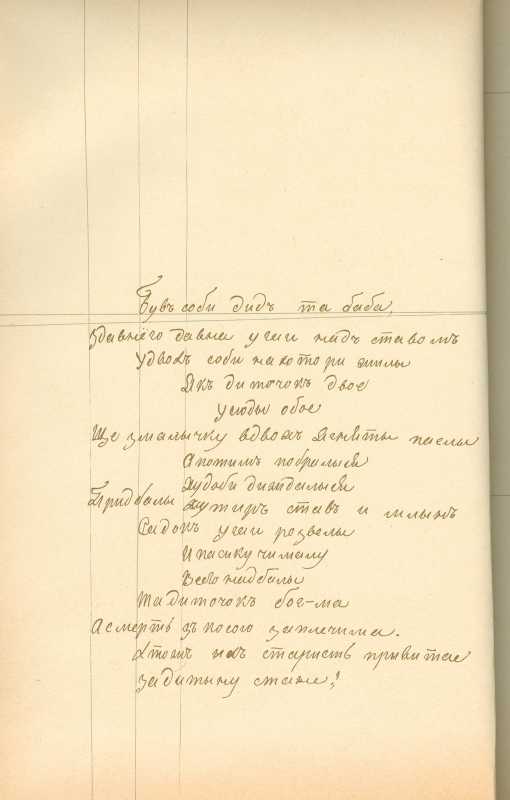 Бувъ соби дидъ та баба,
Здавнёго давна у гаи надъ ставомъ
Удвохъ соби на хотори жилы
Якъ диточокъ двое
усюды обое
Ще змалычку вдвохъ Ягняты паслы
А потимъ побралыся
Худобы диждалыся
Придбалы Хутиръ ставъ и млынъ
Садокъ у гаи розвелы
И пасику чималу
Всёго надбалы
Та диточокъ бог-ма
А смерть зъ косою за плечима.
Хтожъ ихъ старисть привитае
За дитыну стане!